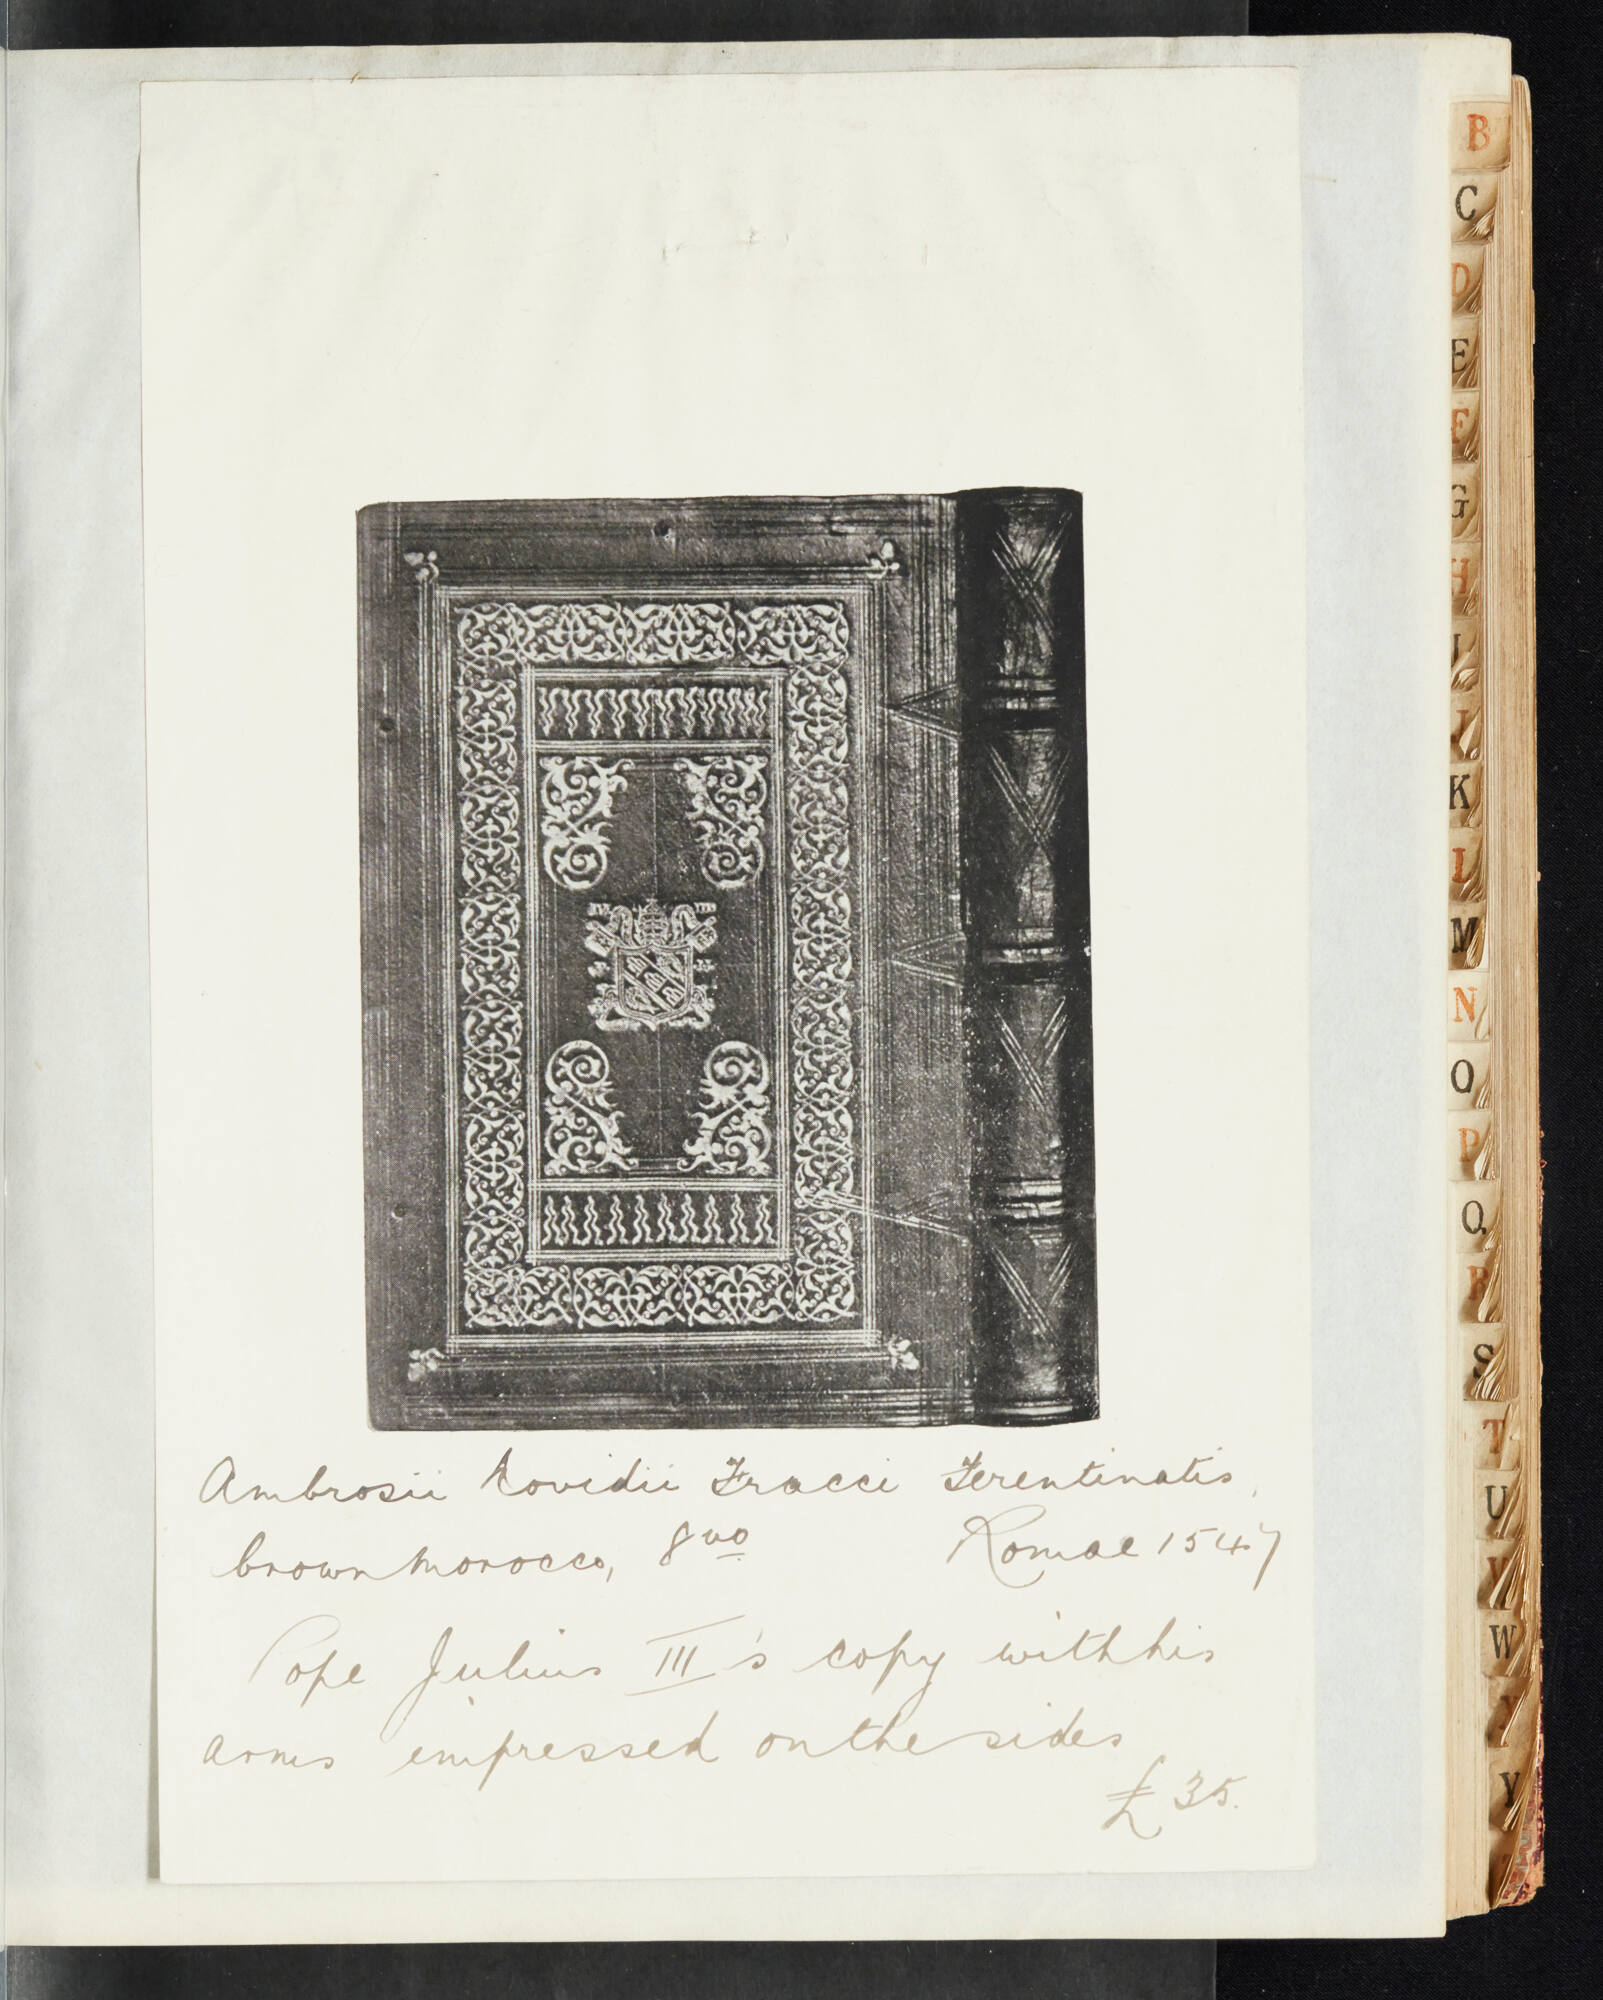 Ambrosii Novidii Fracci Ferentinatis,
brown morocco, 8vo Romae 1547
Pope Julius III's copy with his
arms impressed on the sides
£35.
B
C
D
E
F
G
H
I
J
K
L
M
N
O
P
Q
R
S
T
U
V
W
X
Y